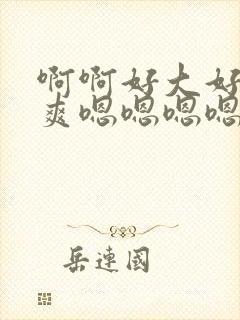 啊啊好大好
爽嗯嗯嗯嗯
岳连国